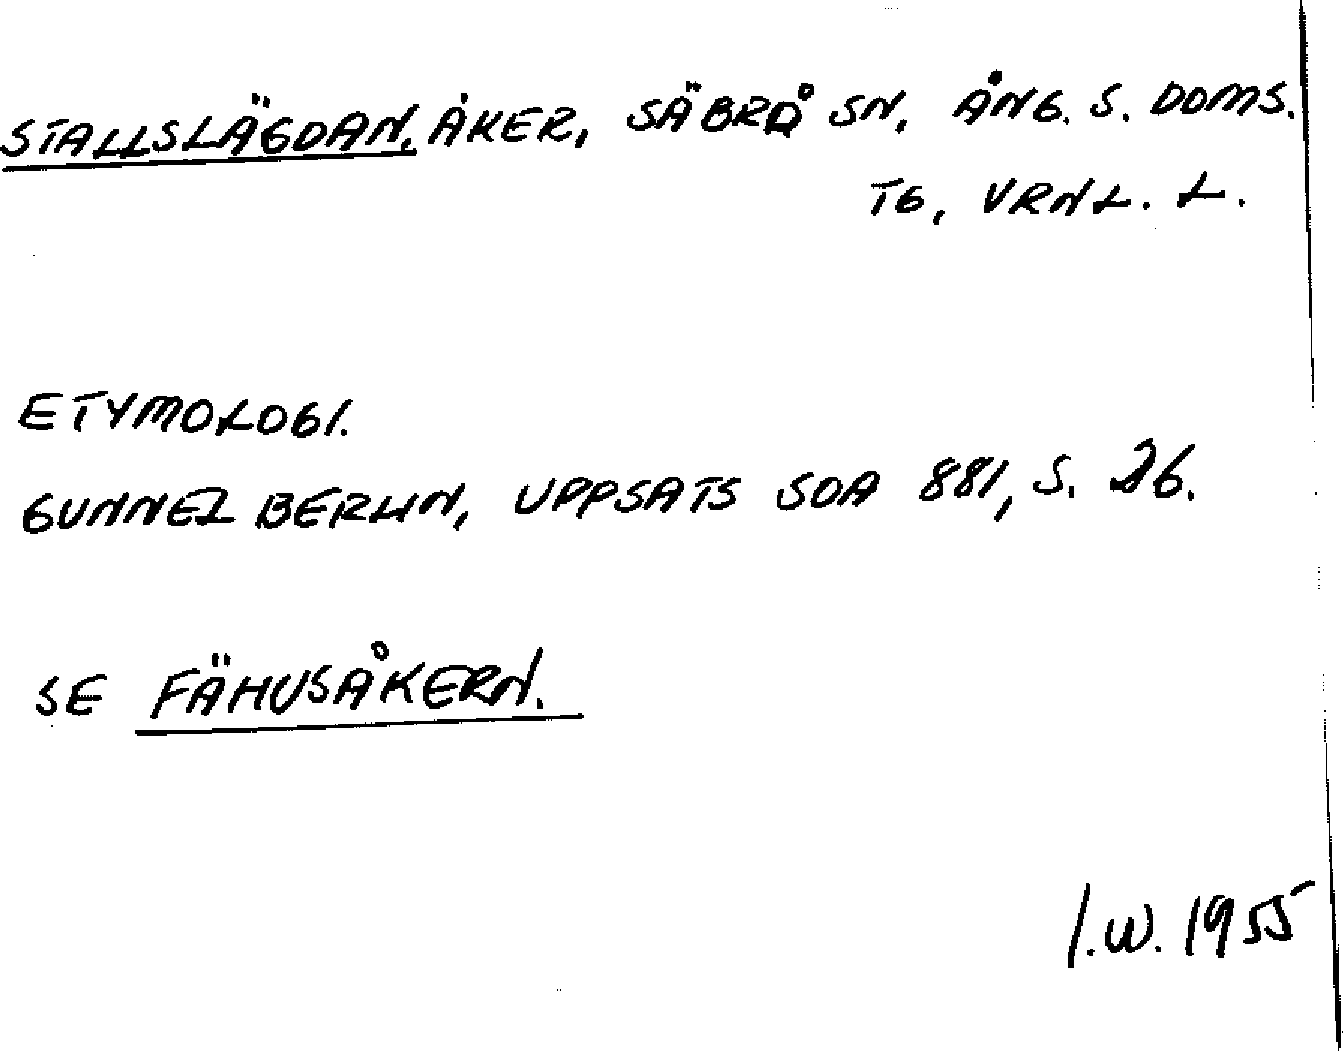 STALLSLÄGDAN, ÅKER, SÄBRÅ SN, ÅNG. S. DOMS.
TG, VRNL. L.
ETYMOLOGI.
GUNNEL BERLIN, UPPSATS SOA 881, S. 26.
SE FÄHUSÅKERN.
I.W. 1955